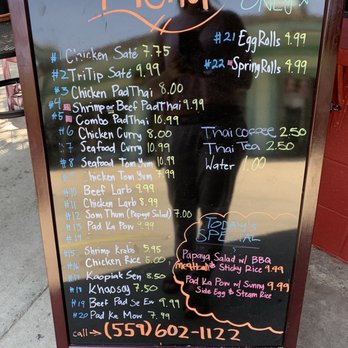 Menu
ONLY
#1 Chicken Saté 7.75
#2 TriTip Saté 9.99
#3 Chicken PadThai 8.00
#4 Shrimp or Beef PadThai 9.99
#5 Combo PadThai 10.99
#6 Chicken Curry 8.00
#7 Seafood Curry 10.99
#8 Seafood Tom Yum 10.99
Chicken Tom Yum 7.99
#10 Beef Larb 9.99
#11 Chicken Larb 8.99
#12 Som Thum (Papaya Salad) 7.00
#13 Pad Ka Pow
#14
#15 Shrimp Krabs 5.95
#16 Chicken Rice 6.00
Kaopiak Sen 8.50
#18 Khaosoy 7.50
#19 Beef Pad Se Ew 9.99
#20 Pad Ka Mow 7.99
call → (559) 602-1122
#21 Egg Rolls 9.99
#22 Spring Rolls 9.99
Thai Coffee 2.50
Thai Tea 2.50
Water 1.00
Today's
SPECIAL
Papaya Salad w/ BBQ
Meatball & Sticky Rice 9.99
Pad Ka Pow w/ Sunny 9.99
Side Egg & Steam Rice